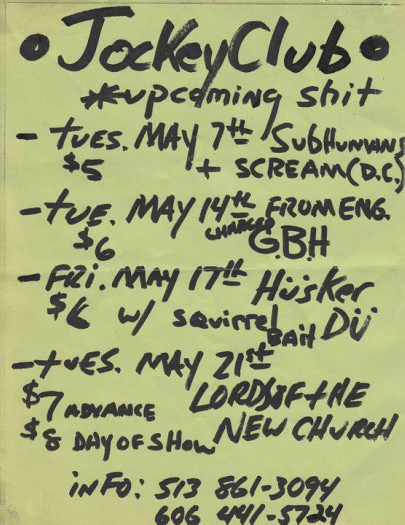 • Jockey Club •
*upcoming shit
- TUES. MAY 7th SUBHUMANS
$5 + SCREAM (D.C.)
- TUE. MAY 14th FROM ENG.
$6 CHARGED G.B.H
- FRI. MAY 17th HÜSKER
$6 w/ SQUIRREL BAIT DÜ
- TUES. MAY 21st
$7 ADVANCE LORDS OF THE
$8 DAY OF SHOW NEW CHURCH
INFO: 513 861-3094
606 441-5724